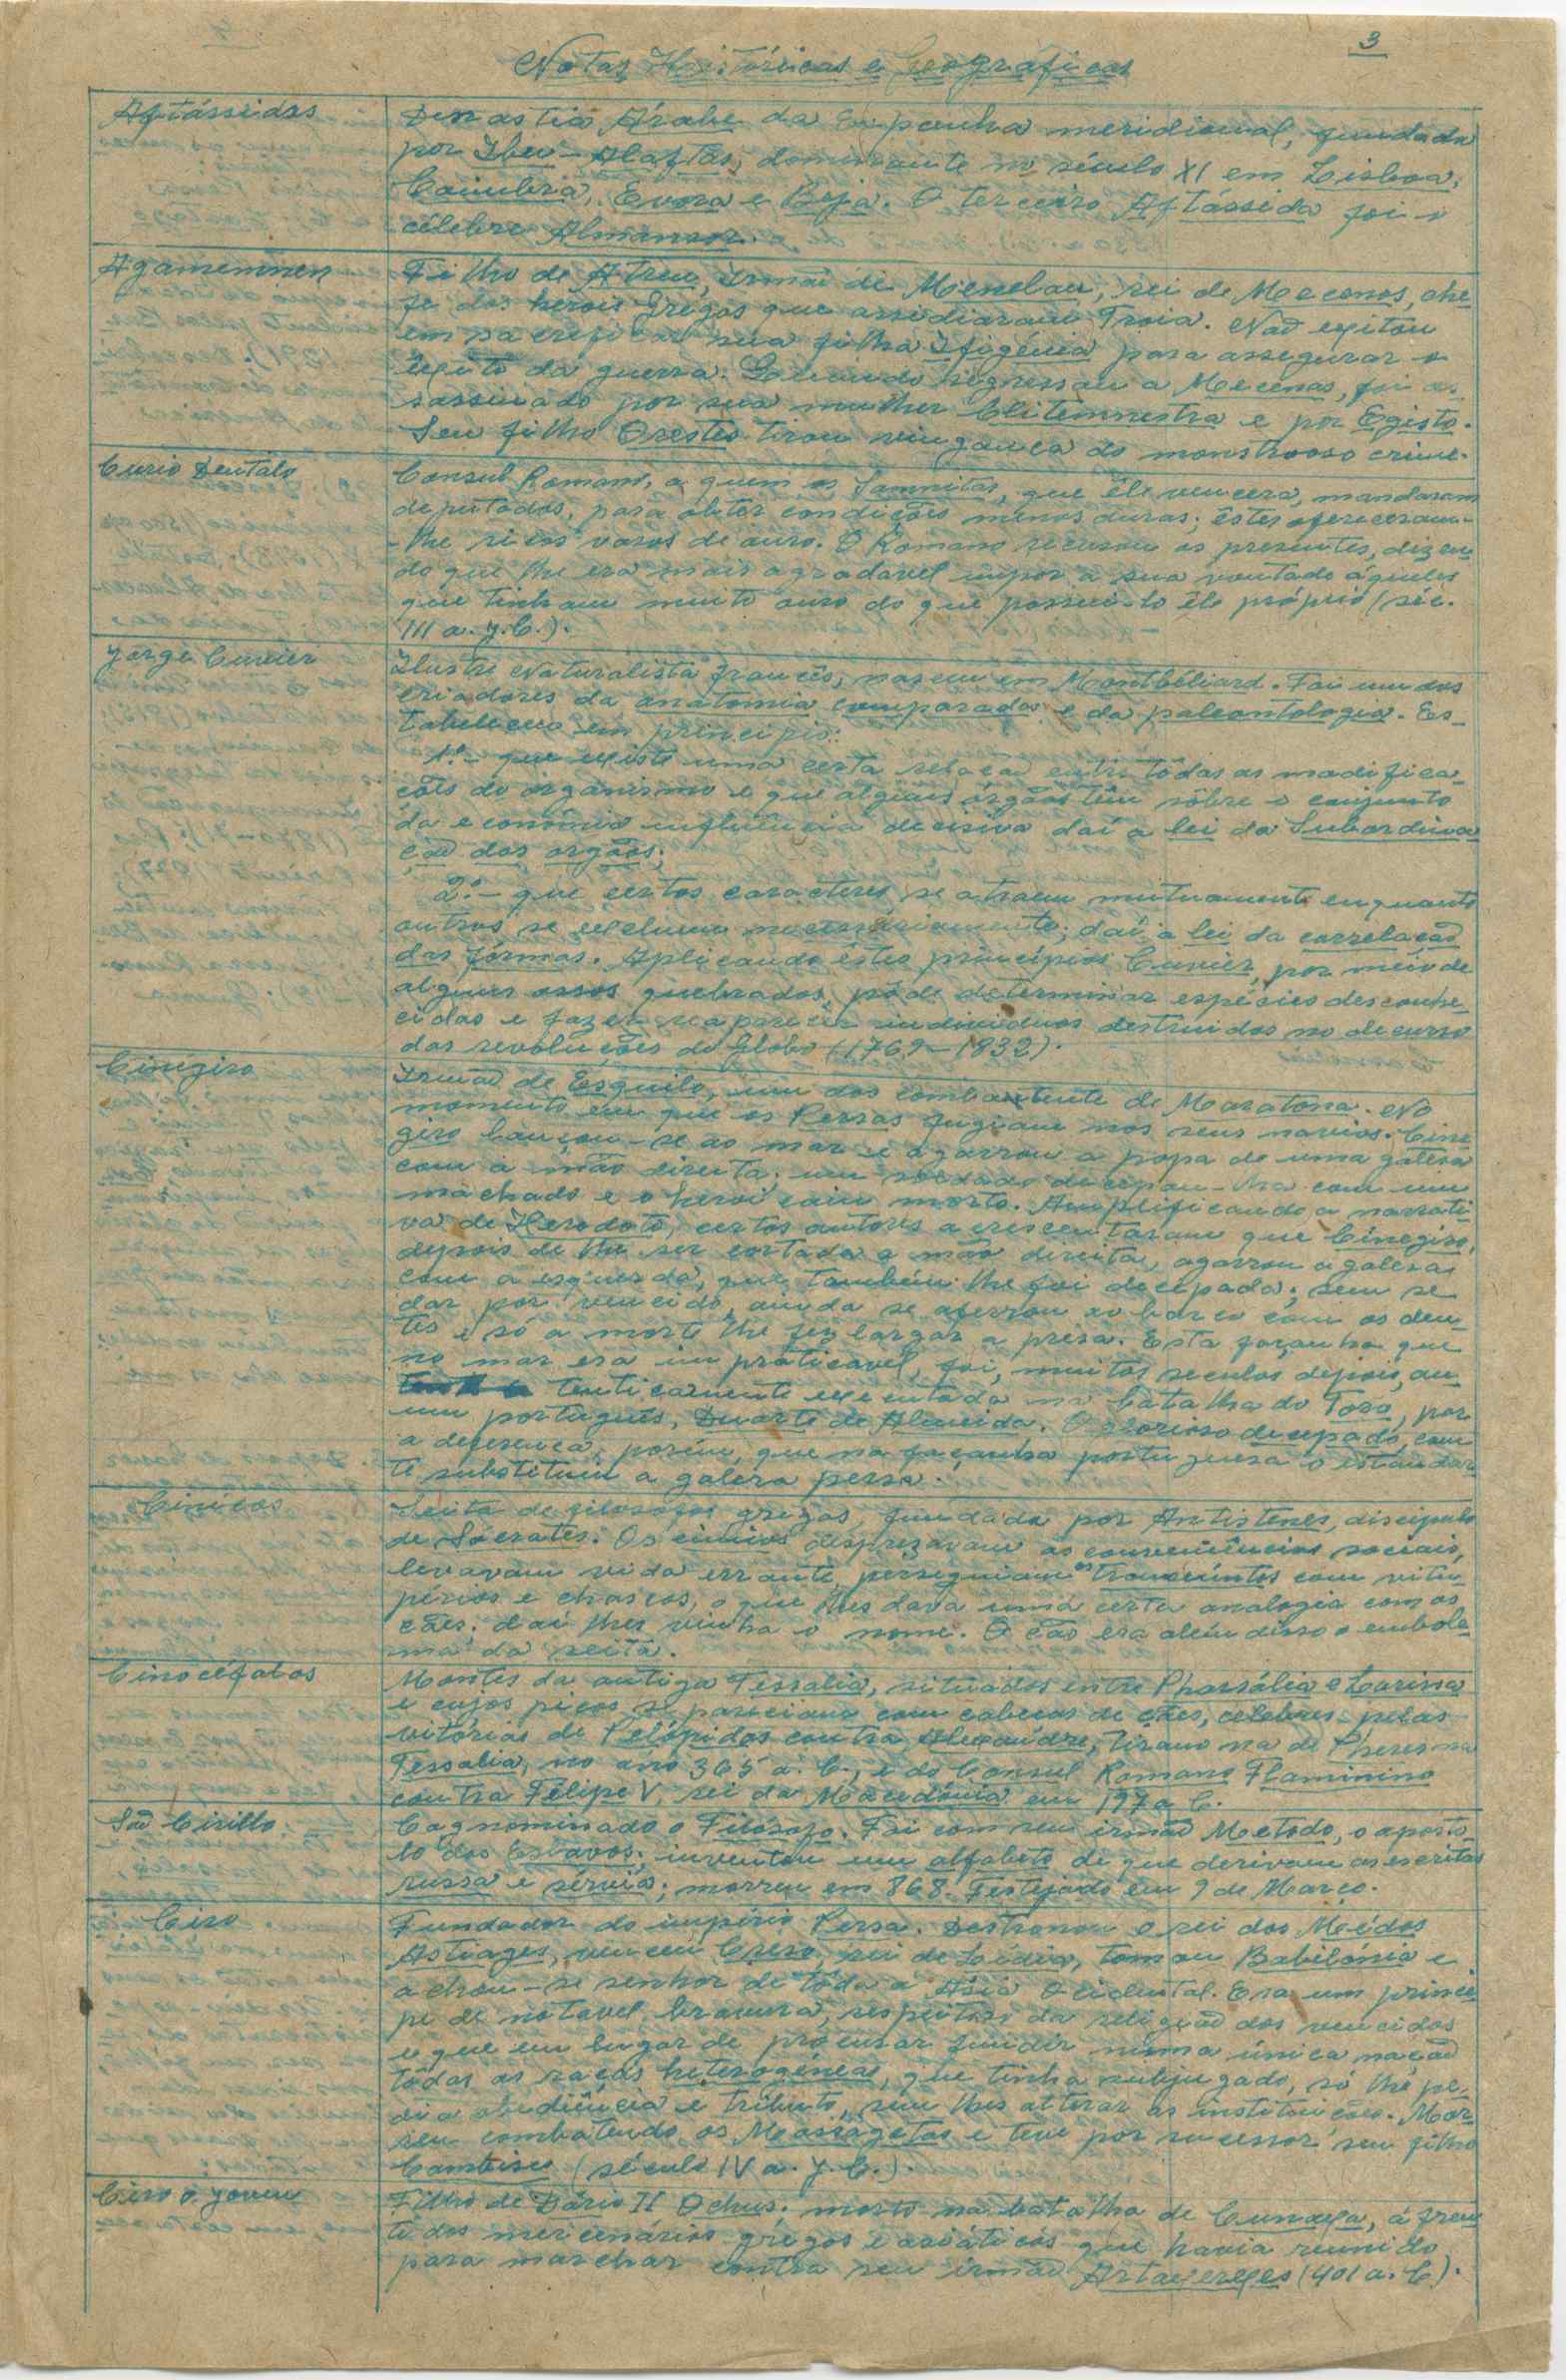 3
Notas Históricas e Geográficas
Aftássidas
Dinastia Árabe da Espanha meridional, fundada
por Iben-Alaftas, dominante no século XI em Lisboa,
Coimbra, Evora e Beja. O terceiro Aftássida foi o
célebre Almansor.
Agamemnon
Filho de Atreu, irmão de Menelau, rei de Mecenas, che
fe dos herois Gregos que assediaram Troia. Não exitou
em sacrificar sua filha Ifigénia para assegurar o
êxito da guerra. Quando regressou a Mecenas, foi as
sassinado por sua mulher Clitemnestra e por Egisto.
Seu filho Orestes tirou vingança do monstruoso crime.
Curio Dentato
Consul Romano, a quem os Samnitas, que êle vencera, mandaram
deputados, para obter condições menos duras; êstes ofereceram-
-lhe ricos vasos de ouro. O Romano recusou os presentes, dizen
do que lhe era mais agradavel impor a sua vontade áqueles
que tinham muito ouro do que possui-lo êle próprio (séc.
III a. J. C.).
Jorge Cuvier
Ilustre Naturalista francês, nasceu em Montbéliard. Foi um dos
criadores da anatomia comparada e da paleontologia. Es-
tabeleceu em principio:
1.º - que existe uma certa relação entre tôdas as modifica-
ções do organismo e que alguns órgãos têm sôbre o conjunto
da economia influência decisiva daí a lei da Subordina
ção dos orgãos;
2.º - que certos caracteres se atraem mutuamente enquanto
outros se excluem necessáriamente; daí a lei da correlação
das fórmas. Aplicando êstes princípios Cuvier, por meio de
alguns ossos quebrados, pôde determinar espécies desconhe
cidas e fazer reaparecer individuos destruidos no decurso
das revoluções do Globo (1769-1832).
Cinegiro
Irmão de Esquilo, um dos combatente de Maratona. No
momento em que os Persas fugiam nos seus navios. Cine
giro lançou-se ao mar e agarrou a popa de uma galera
com a mão direita; um soldado decepou-lha com um
machado e o heroi caiu morto. Amplificando a narrati
va de Herodoto, certos autores acrescentaram que Cinegiro,
depois de lhe ser cortada a mão direita, agarrou a galera
com a esquerda, que também lhe foi decepada; sem se
dar por vencido, ainda se aferrou ao barco com os den_
tes e só a morte lhe fez largar a presa. Esta façanha que
no mar era impraticavel, foi, muitos seculos depois, au_
tenticamente executada na batalha do Toro, por
um português, Duarte de Almeida. O glorioso decepado, com
a deferença, porém, que na façanha portuguesa o estandar
te substituiu a galera persa.
Cínicos
Seita de filosofos gregos, fundada por Antistenes, discipulo
de Sócrates. Os cinicos desprezavam as conveniências sociais,
levavam vida errante, perseguiam os transeúntes com vitu_
périos e chascos, o que lhes dava uma certa analogia com os
cães; daí lhes vinha o nome. O cão era além disso o emblê
ma da seita.
Cinocéfalos
Montes da antiga Tessalia, situados entre Pharsália e Larissa
e cujos picos se pareciam com cabeças de cães, celebres pelas
vitórias de Pelópidas contra Alexandre, Tirano na de Pheres na
Tessalia, no ano 365 a. C., e do Consul Romano Flaminino
contra Felipe V, rei da Macedónia em 197 a C.
São Cirillo
Cognominado o Filósofo. Foi com seu irmão Metodo, o aposto_
lo dos Eslavos; inventou um alfabeto de que derivam as escritas
russa e sérvia; morreu em 868. Festejado em 9 de Março.
Ciro
Fundador do império Persa. Destronou o rei dos Médos
Astiages, venceu Creso, rei de Lédia, tomou Babilónia e
achou-se senhor de tôda a Ásia Ocidental. Era um princi
pe de notavel bravura, respeitoso da religião dos vencidos
e que em lugar de procurar fundir numa única nação
tôdas as raças heterogéneas, que tinha subjugado, só lhe pe_
dia obediência e tributo, sem lhes alterar as instituições. Mor
reu combatendo os Massagetas e teve por sucessor seu filho
Cambises (século IV a. J. C.).
Ciro o Jovem
Filho de Dário II Ochus; morto na batalha de Cunaxa, á fren
te dos mercenários gregos e asiáticos que havia reunido
para marchar contra seu irmão Artaxerxes (401 a. C).